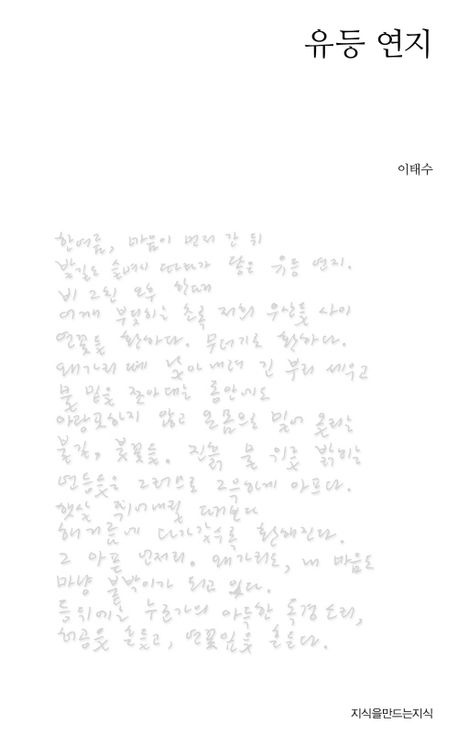 유등 연지
이태수
한여름, 마음이 먼저 간 뒤
발길도 슬며시 따라가 닿은 유등 연지.
비 그친 오후 한때
어깨 부딪히는 초록 저희 우산들 사이
연꽃들 환하다. 무더기로 환하다.
왜가리 떼 날아 내려 긴 부리 세우고
물 밑을 쪼아대는 동안에도
아랑곳하지 않고 온몸으로 밀어 올리는
불길, 불꽃들. 진흙 물 위를 밝히는
연등들은 그러므로 그윽하게 아프다.
햇살 뛰어내릴 때보다
해거름에 다가갈수록 환해진다.
그 아픈 언저리. 왜가리도, 내 마음도
마냥 붙박이가 되고 있다.
등 뒤에는 누군가의 아득한 독경 소리,
허공을 흔들고, 연꽃잎을 흔든다.
지식을만드는지식